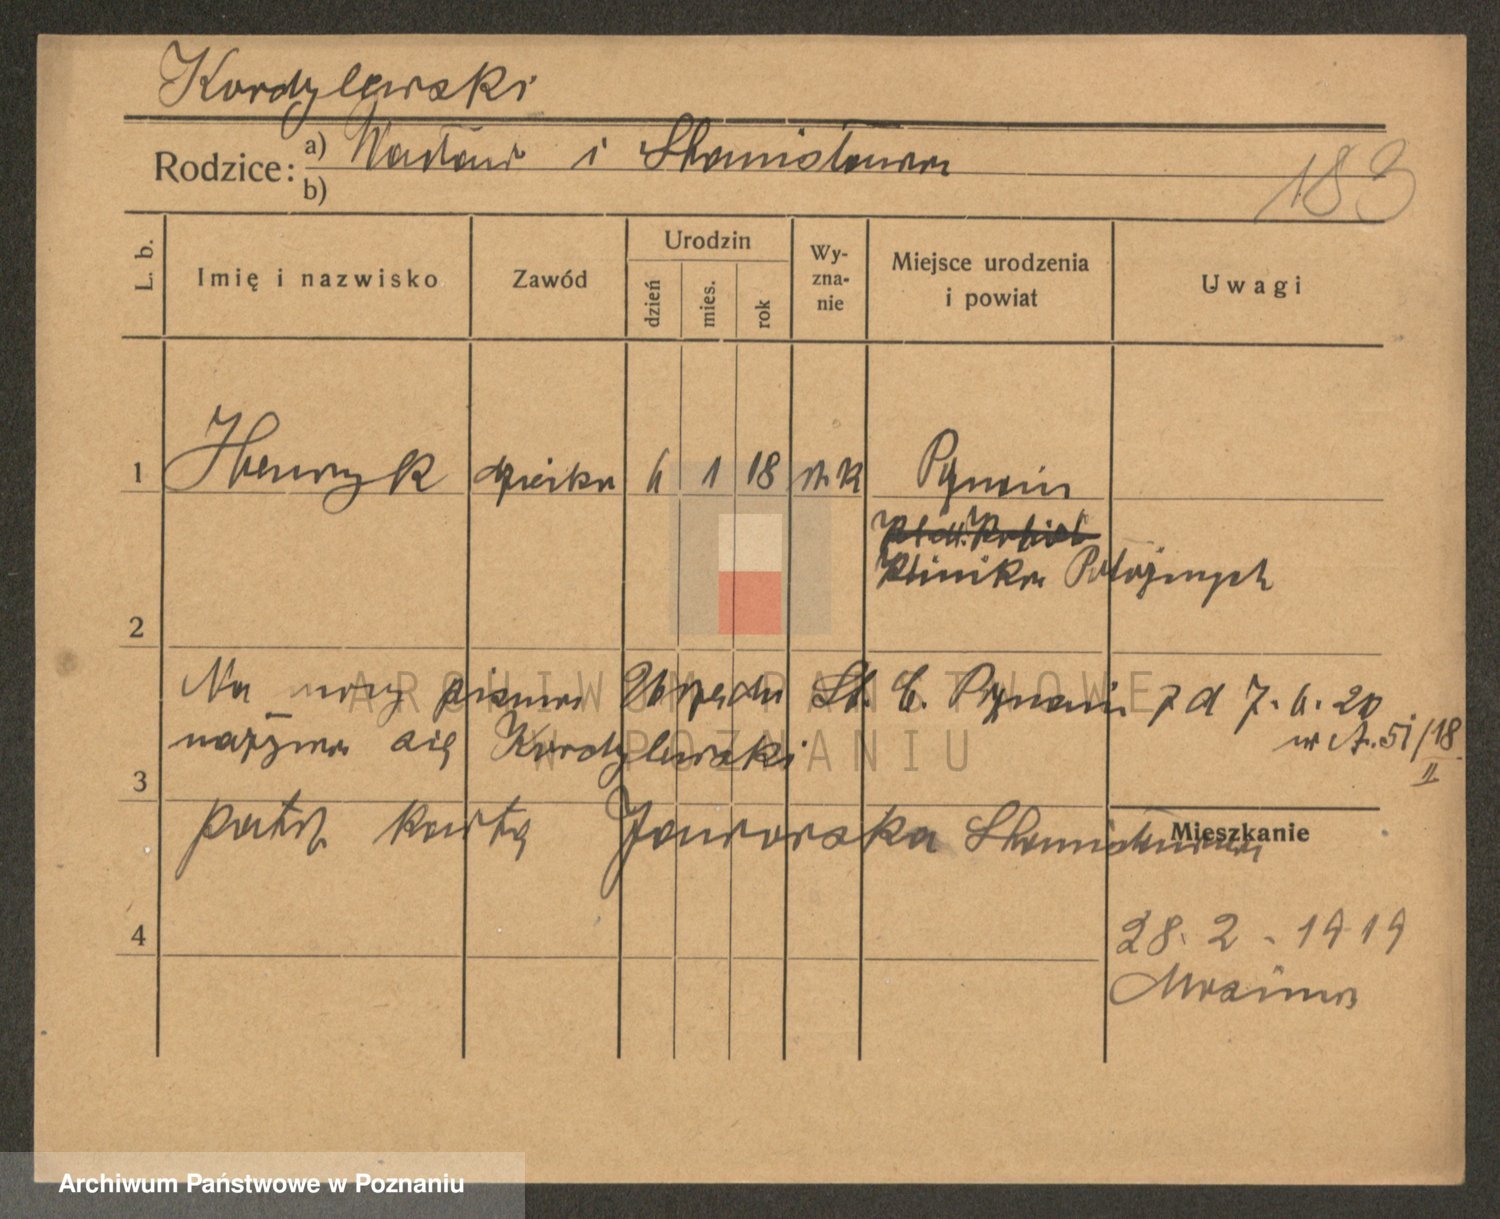 Kordylewski
Rodzice: a) Wacław i Stanisława
b)
183
L. b.
Imię i nazwisko
Zawód
Urodzin
dzień
mies.
rok
Wy-
zna-
nie
Miejsce urodzenia
i powiat
Uwagi
1 Henryk dziecko 6 1 18 r. k Poznań
Klinika Położnych
2
Na mocy pisma Urzędu St. C. Poznań z d 7. 6. 20
w A. 51/18
II
nazywa się Kordylewski
3
patrz kartę Jaworska Stanisława
Mieszkanie
4
28. 2 - 1919
ARCHIWUM PAŃSTWOWE
W POZNANIU
Archiwum Państwowe w Poznaniu